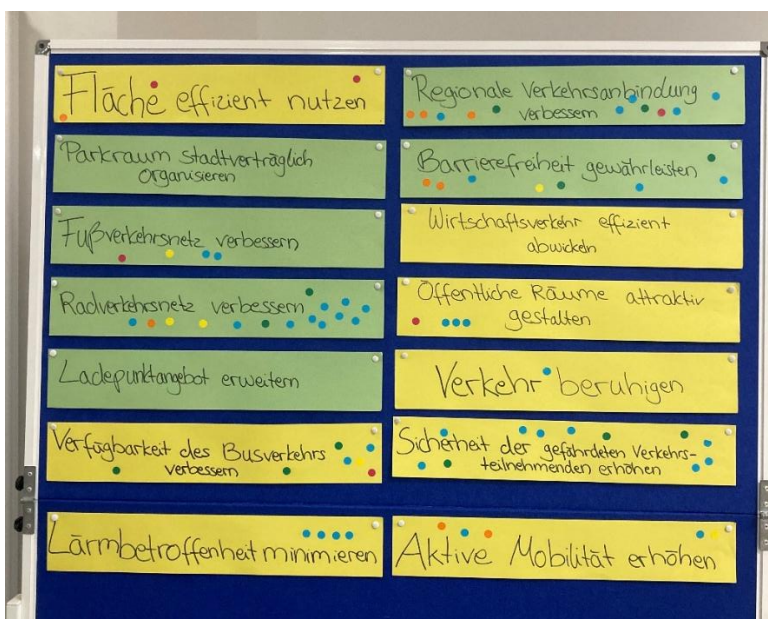 Fläche effizient nutzen
Parkraum stadtverträglich
organisieren
Fußverkehrsnetz verbessern
Radverkehrsnetz verbessern
Ladepunktangebot erweitern
Verfügbarkeit des Busverkehrs
verbessern
Lärmbetroffenheit minimieren
Regionale Verkehrsanbindung
verbessern
Barrierefreiheit gewährleisten
Wirtschaftsverkehr effizient
abwickeln
Öffentliche Räume attraktiv
gestalten
Verkehr beruhigen
Sicherheit der gefährdeten Verkehrs-
teilnehmenden erhöhen
Aktive Mobilität erhöhen